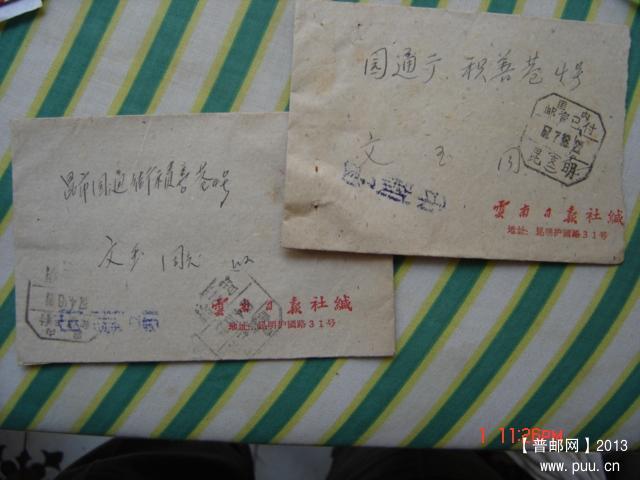 昆市圆通街积善巷4号
文玉 同志 收
雲南日報社缄
地址:昆明护國路31号
圆通街 积善巷4号
文 玉 同
国内
邮资已付
昆 明
雲南日報社缄
地址:昆明护國路31号
1 11:26PM
【普邮网】2013
www.puu.cn